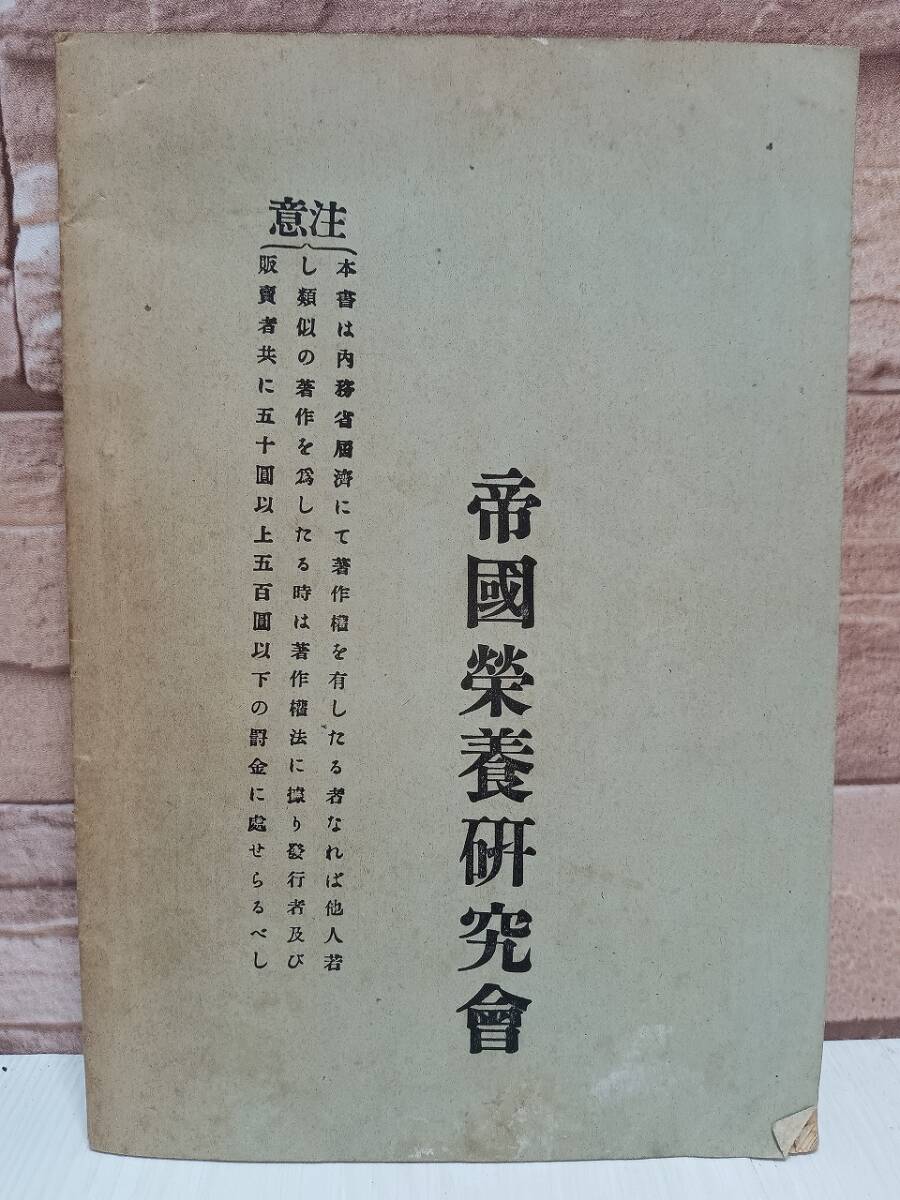 帝國榮養研究會
注意
本書は内務省屆濟にて著作權を有したる者なれば他人若
し類似の著作を爲したる時は著作權法に據り發行者及び
販賣者共に五十圓以上五百圓以下の罰金に處せらるべし